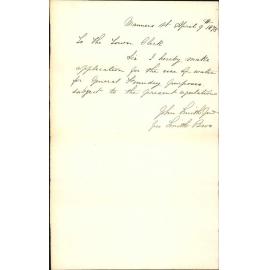 Manners St April 9th 1878
To the Town Clerk
Sir I hereby make
application for the use of water
for General Foundry purposes
subject to the present regulations
John Smith Jnr
for Smith Bros